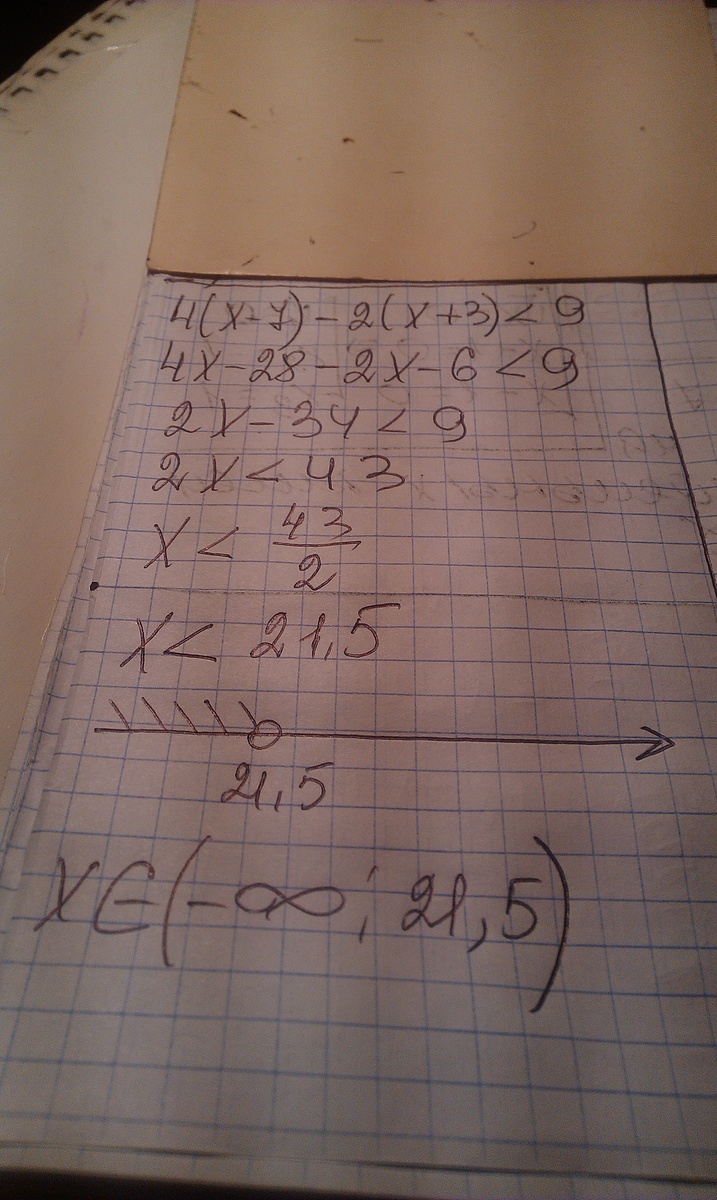 4(x-7)-2(x+3)<9
4x-28-2x-6<9
2x-34<9
2x<43
x< 43/2
x< 21,5
21,5
x∈(-∞; 21,5)